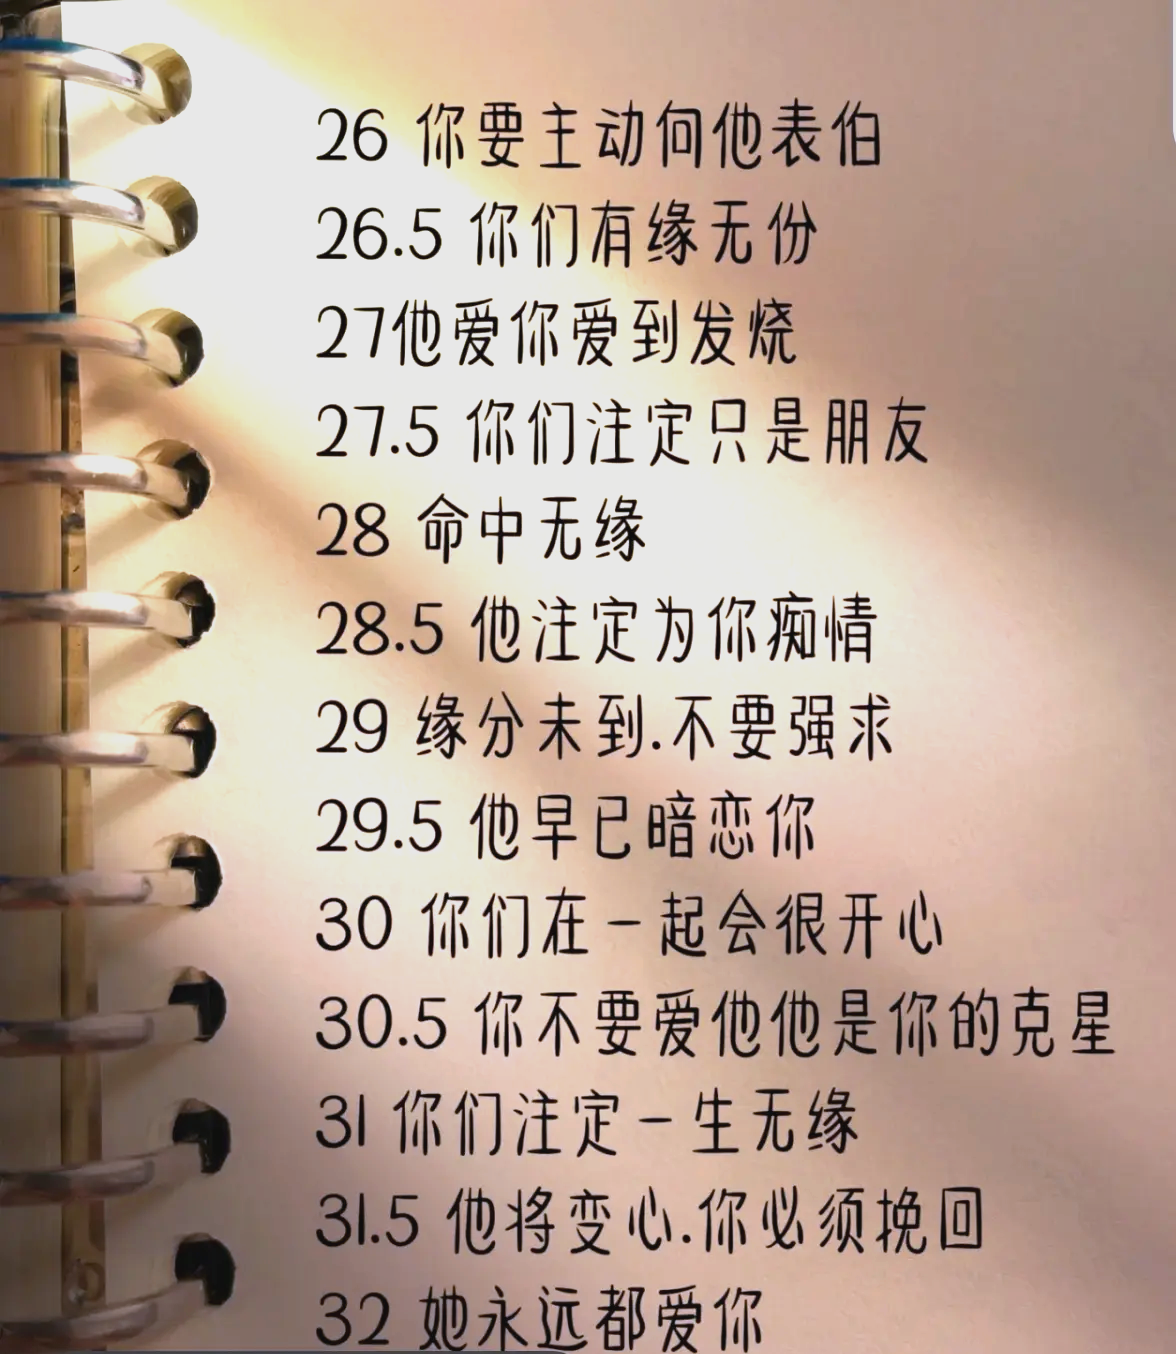 26 你要主动向他表伯
26.5 你们有缘无份
27他爱你爱到发烧
27.5 你们注定只是朋友
28 命中无缘
28.5 他注定为你痴情
29 缘分未到.不要强求
29.5 他早已暗恋你
30 你们在一起会很开心
30.5 你不要爱他他是你的克星
31 你们注定一生无缘
31.5 他将变心.你必须挽回
32 她永远都爱你